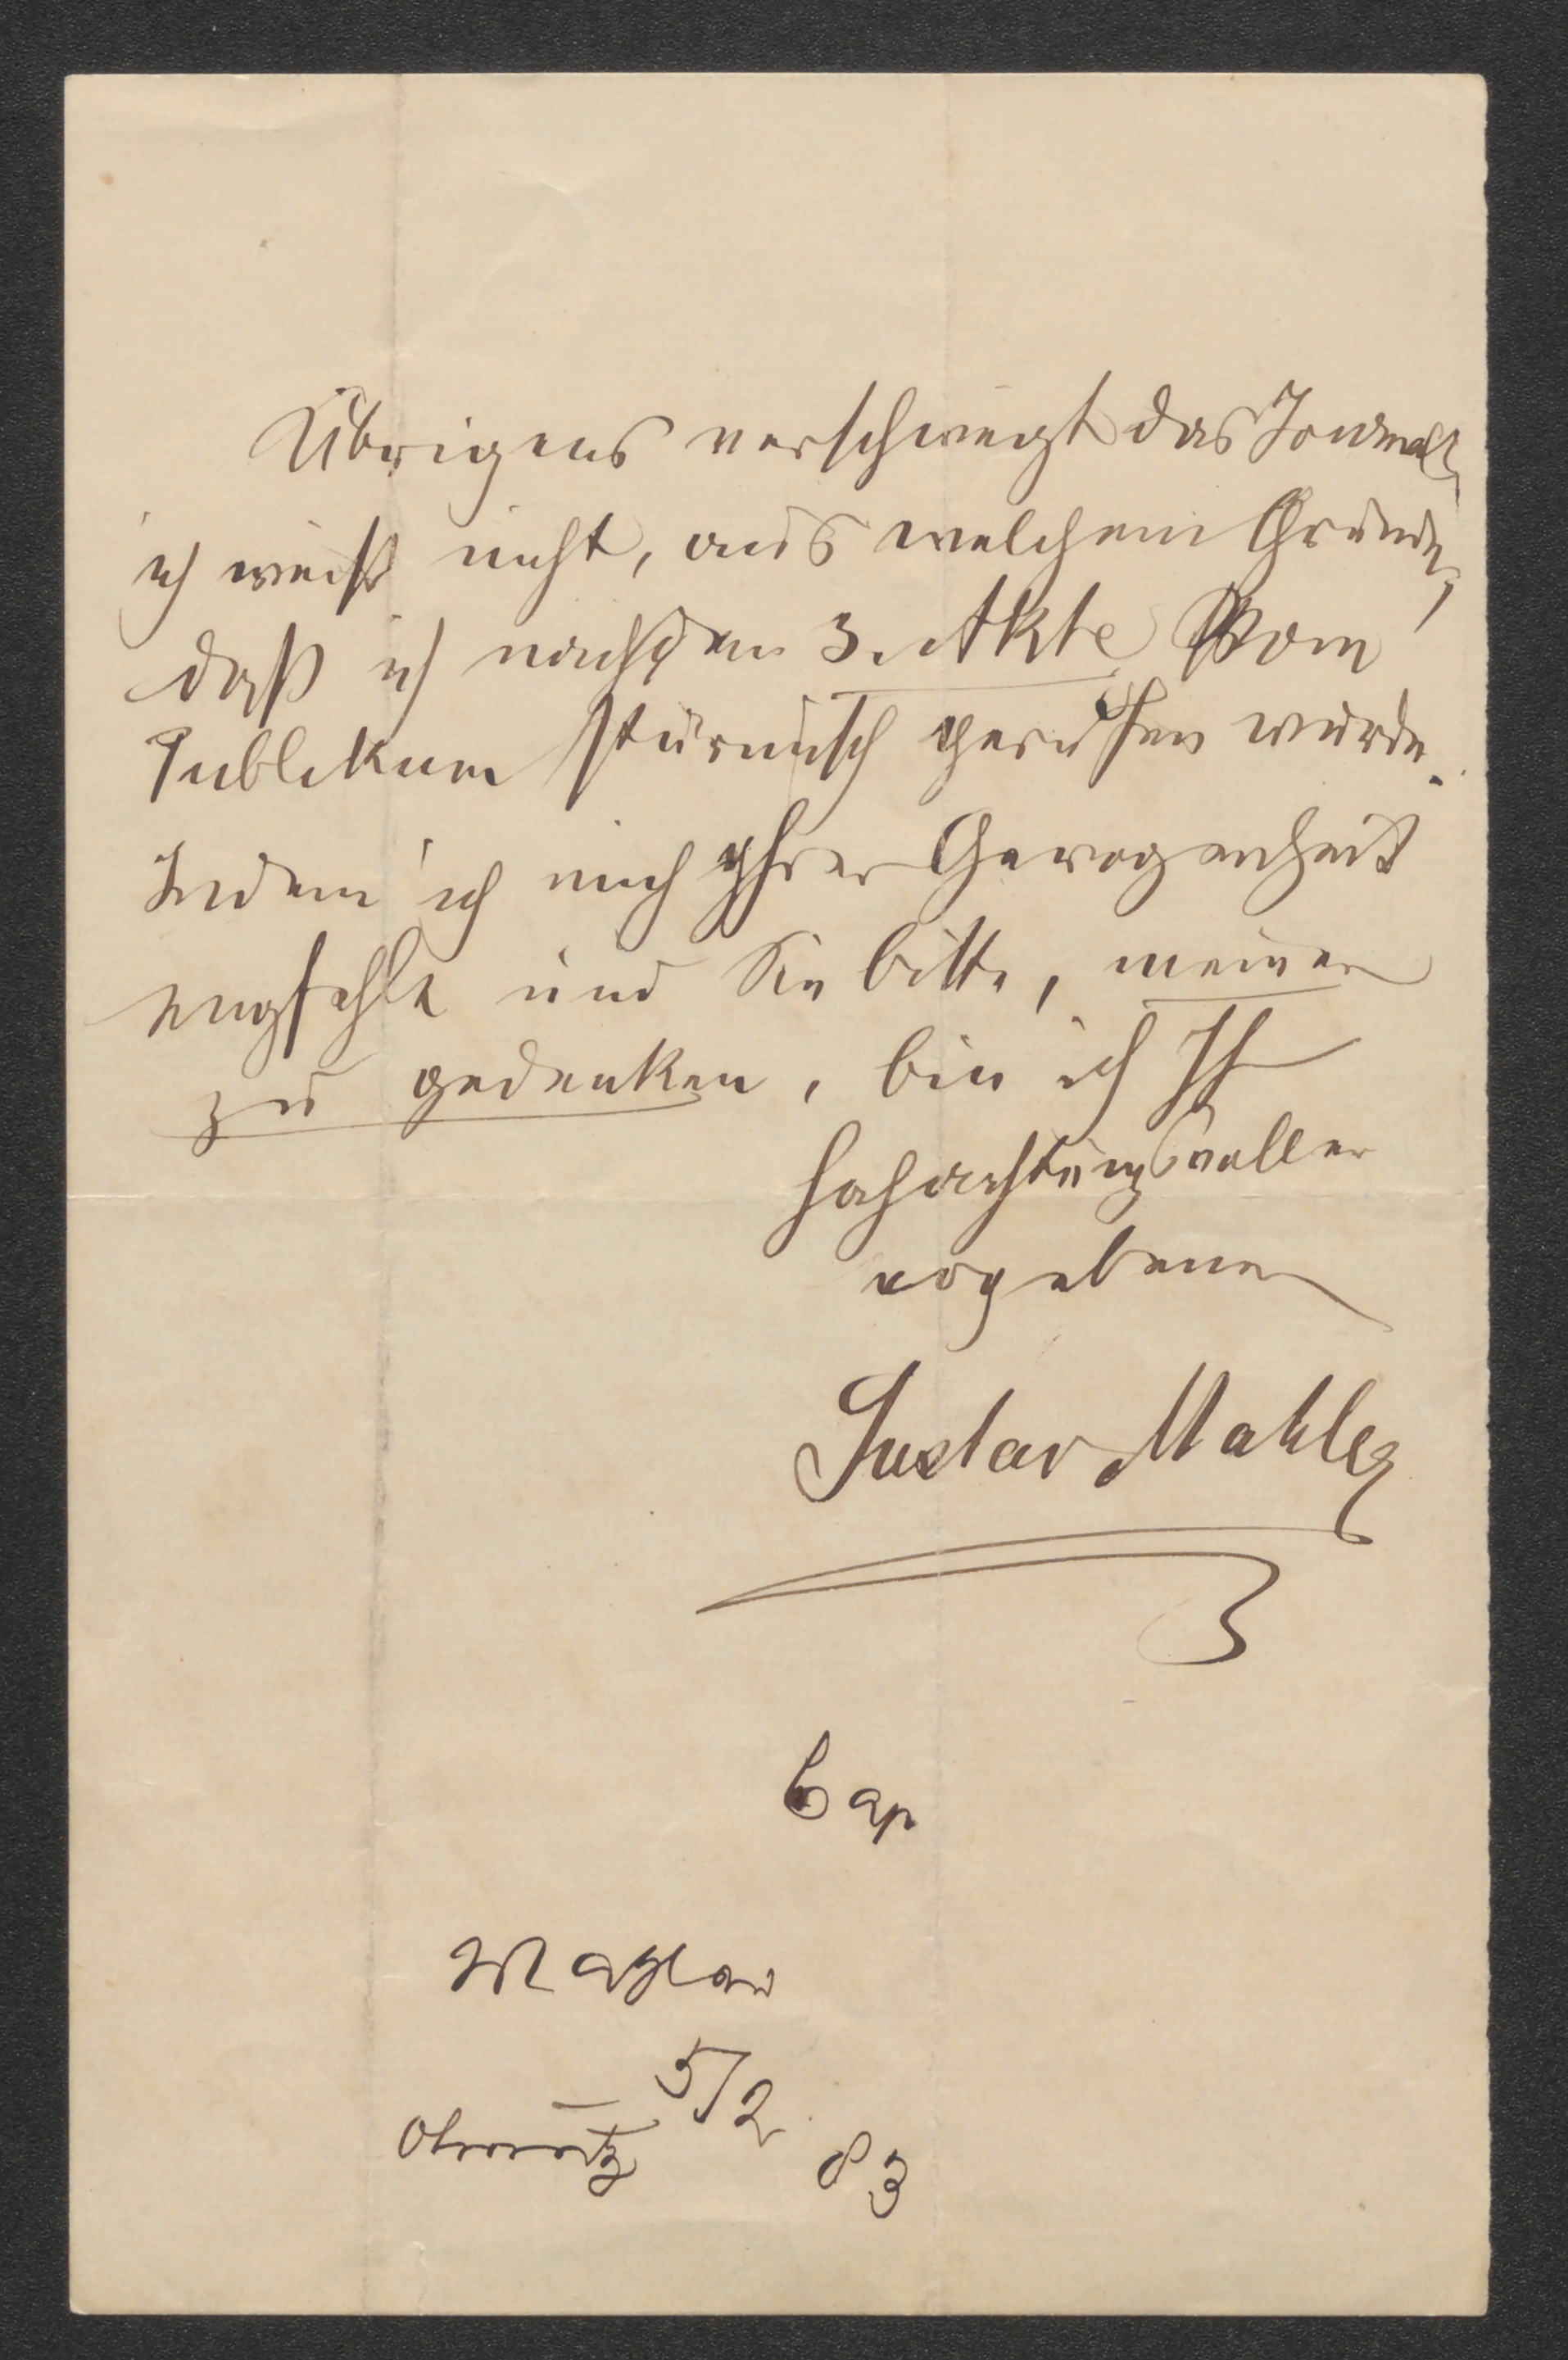 Übrigens verschweigt das Journal,
ich weiß nicht, aus welchem Grunde,
daß ich nach dem 3. Akte vom
Publikum stürmisch gerufen wurde.
Indem ich mich Ihrer Gewogenheit
empfehle und Sie bitte, meiner
zu gedenken, bin ich Ihr
hochachtungsvoller
ergebener
Gustav Mahler
Cap
Mahler
5/2
Olmütz
83